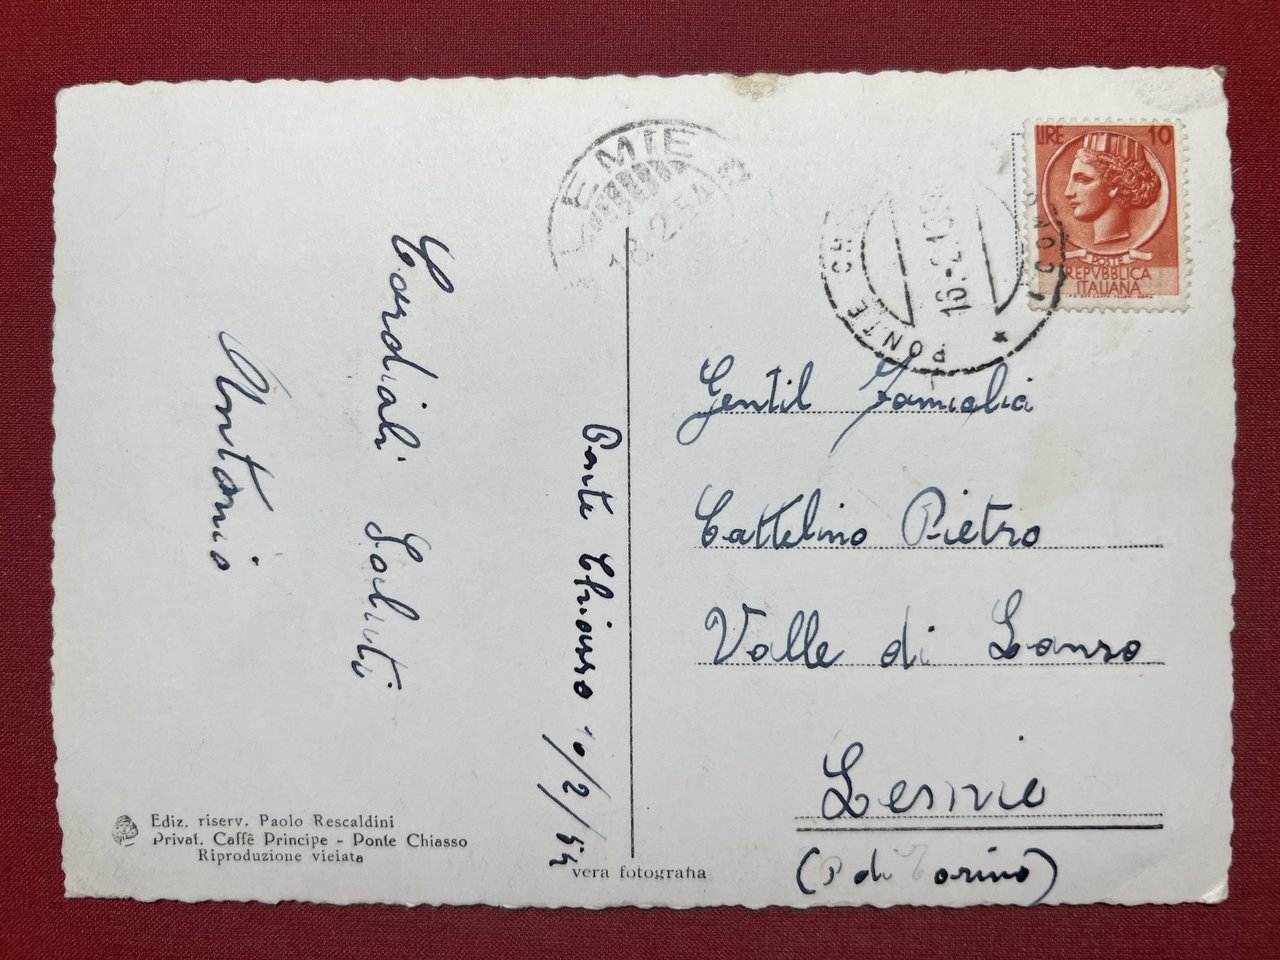 LEMIE
18.2.54
PONTE CH
COMO
16.-2.1954
LIRE 10
POSTE
REPVBBLICA
ITALIANA
Cordiali Saluti
Antonio
Ponte Chiasso 16/2/54
Gentil Famiglia
Cattelino Pietro
Valle di Lanzo
Lemie
(P di Torino)
Ediz. riserv. Paolo Rescaldini
Privat. Caffê Principe - Ponte Chiasso
Riproduzione vietata
vera fotografia